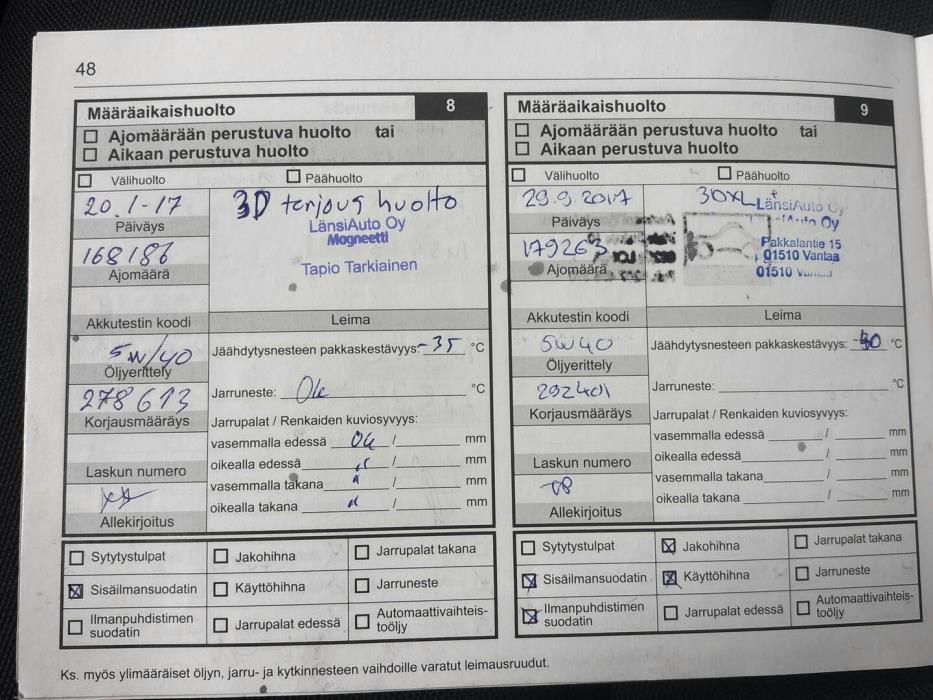 48
Määräaikaishuolto 8
Ajomäärään perustuva huolto tai
Aikaan perustuva huolto
Välihuolto Päähuolto
20.1-17
Päiväys
3D tarjous huolto
LänsiAuto Oy
Magneetti
Tapio Tarkiainen
168186
Ajomäärä
Akkutestin koodi
Leima
5W/40
Öljyerittely
278613
Korjausmääräys
Laskun numero
Allekirjoitus
Jäähdytysnesteen pakkaskestävyys: -35 °C
Jarruneste: Ok °C
Jarrupalat / Renkaiden kuviosyvyys:
vasemmalla edessä Ok / mm
oikealla edessä " / mm
vasemmalla takana " / mm
oikealla takana " / mm
Sytytystulpat Jakohihna Jarrupalat takana
Sisäilmansuodatin Käyttöhihna Jarruneste
Ilmanpuhdistimen suodatin Jarrupalat edessä Automaattivaihteis-
toöljy
Määräaikaishuolto 9
Ajomäärään perustuva huolto tai
Aikaan perustuva huolto
Välihuolto Päähuolto
29.9.2017
Päiväys
30XL
LänsiAuto Oy
Pakkalantie 15
01510 Vantaa
01510 Vantaa
179263
Ajomäärä
Akkutestin koodi
Leima
5W40
Öljyerittely
292401
Korjausmääräys
Laskun numero
Allekirjoitus
Jäähdytysnesteen pakkaskestävyys: °C
Jarruneste: °C
Jarrupalat / Renkaiden kuviosyvyys:
vasemmalla edessä / mm
oikealla edessä / mm
vasemmalla takana / mm
oikealla takana / mm
Sytytystulpat Jakohihna Jarrupalat takana
Sisäilmansuodatin Käyttöhihna Jarruneste
Ilmanpuhdistimen suodatin Jarrupalat edessä Automaattivaihteis-
toöljy
Ks. myös ylimääräiset öljyn, jarru- ja kytkinnesteen vaihdoille varatut leimausruudut.